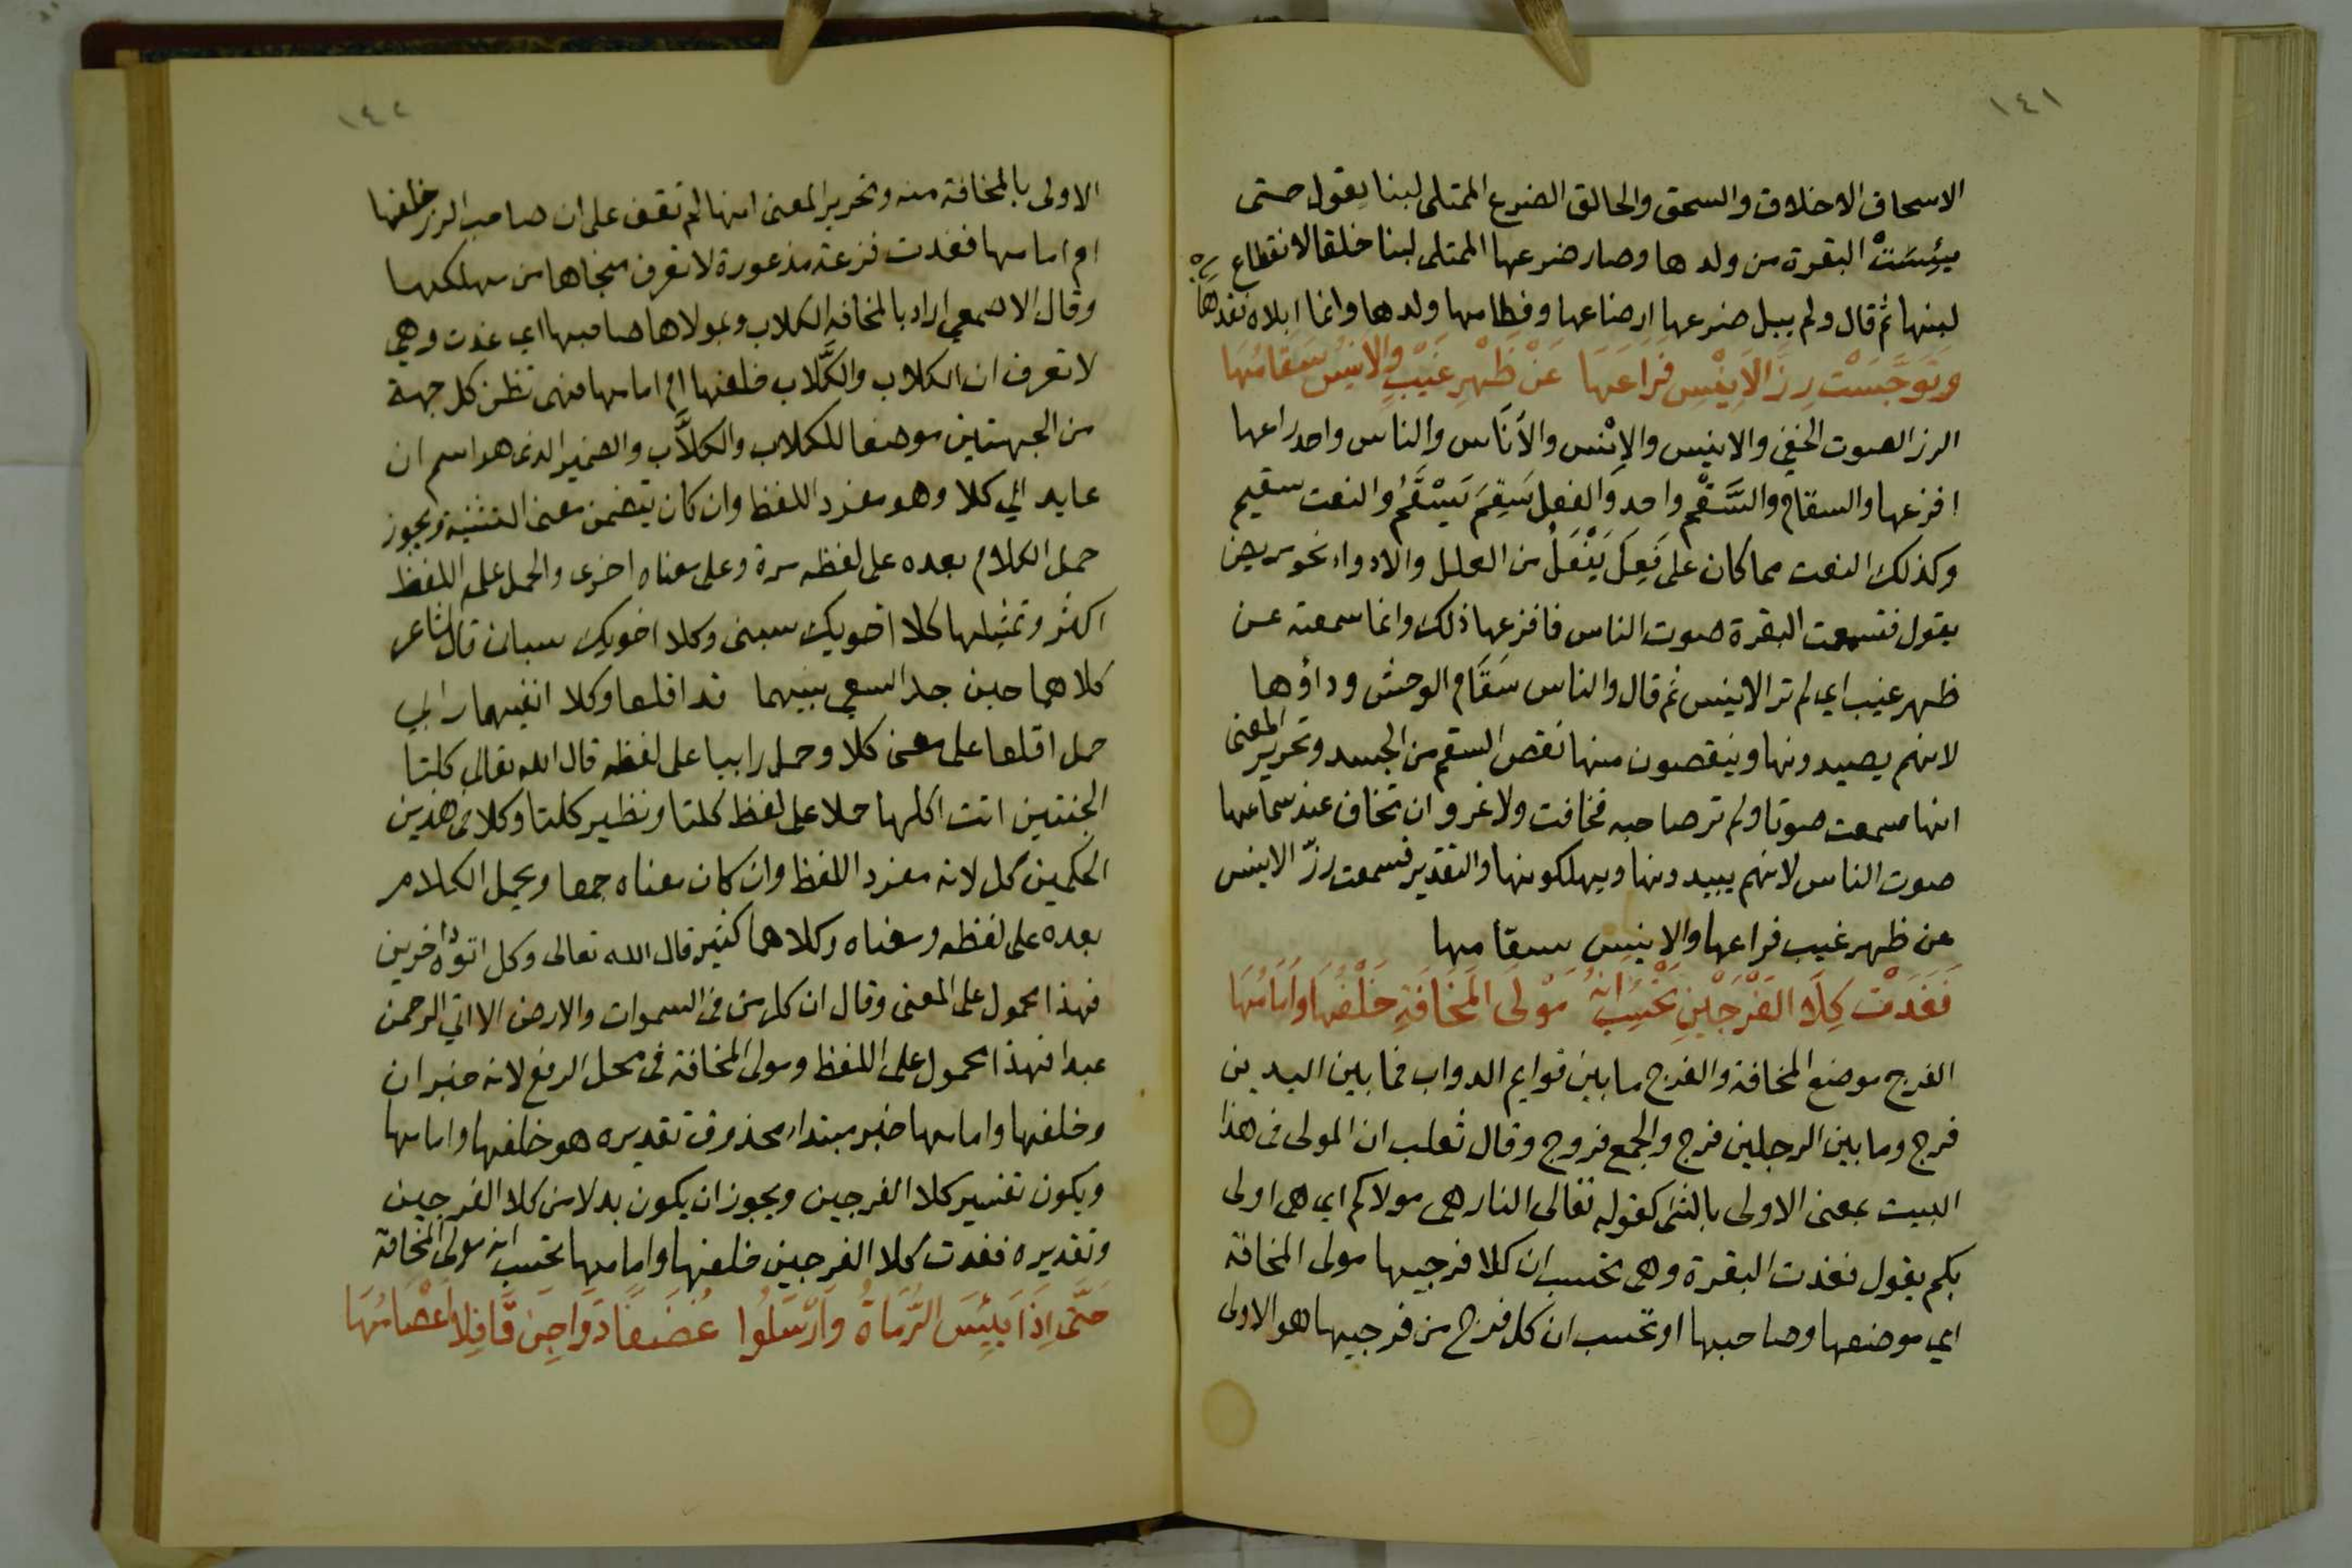 ١٤١
الاسحاق الاخلاق والسحق والحالق الضرع الممتلى لبنا يقول حتى
يئِسَتْ البقرة من ولدها وصار ضرعها الممتلى لبنا خلقا لانقطاع
لبنها ثم قال ولم يبل ضرعها ارضاعها وفطامها ولدها وانما ابلاه فقدها
وَتَوَجَّسَتْ رِزَّ الاَنِيْسِ فَرَاعَهَا عَنْ ظَهْرِ غَيْبٍ والانِيْسُ سَقَامُهَا
الرز الصوت الخفي والانيس والاِنْس والأنَاس والناس واحد راعها
افزعها والسقام والسَّقْم واحد وَالفعل سَقِمَ يَسْقَمُ والنعت سقيم
وكذلك النعت مما كان على فَعِلَ يَفْعَلُ من العلل والادواء نحو مريض
يقول فتسمعت البقرة صوت الناس فافزعها ذلك وانما سمعته عن
ظهر غيب اي لم تر الانيس ثم قال والناس سَقَام الوحش وداؤها
لانهم يصيدونها وينقصون منها نقص السقم من الجسد وتحرير المعنى
انها سمعت صوتا ولم تر صاحبه فخافت ولا غرو ان تخاف عند سماعها
صوت الناس لانهم يبيدونها ويهلكونها والتقدير فسمعت رزّ الانيس
عن ظهر غيب فراعها والانيس سقامها
فَغَدَتْ كِلَا الفَرْجَيْنِ تَحْسِبُ انّهُ مَوْلَى المَخَافَةِ خَلْفُهَا وَاَمَامُهَا
الفرج موضع المخافة والفرج ما بين قوايم الدواب فما بين اليدين
فرج وما بين الرجلين فرج والجمع فروج وقال ثعلب ان المولى فى هذا
البيت بمعنى الاولى بالشى كقوله تعالى النار هى مولاكم اي هى اولى
بكم يقول فغدت البقرة وهى تحسب ان كلا فرجيها مولى المخافة
اي موضعها وصاحبها او تحسب ان كل فرج من فرجيها هو الاولى
١٤٢
الاولى بالمخافة منه وتحرير المعنى انها لم تقف على ان صاحب الرز خلفها
ام امامها فغدت فزعة مذعورة لا تعرف منجاها من مهلكها
وقال الاصمعي اراد بالمخافة الكلاب وبمولاها صاحبها اي غدت وهي
لا تعرف ان الكلاب والكَلَّاب خلفها ام امامها فهى تظن كل جهة
من الجهتين موضعا للكلاب والكلَّاب والضمير الذى هو اسم ان
عايد الي كلا وهو مفرد اللفظ وان كان يتضمن معنى التثنية ويجوز
حمل الكلام بعده على لفظه مرة وعلى معناه اخرى والحمل على اللفظ
اكثر وتمثيلها كلا اخويك سبنى وكلا اخويك سبان قال الشاعر
كلاهما حين جد السعي بينهما قد اقلعا وكلا انفيهما رابي
حمل اقلعا على معنى كلا وحمل رابيا على لفظه قال الله تعالى كلتا
الجنتين اتت اكلها حملا على لفظ كلتا ونظير كلتا وكلا فى هذين
الحكمين كل لانه مفرد اللفظ وان كان معناه جمعا ويحمل الكلام
بعده على لفظه ومعناه وكلاهما كثير قال الله تعالى وكل اتوه داخرين
فهذا محمول على المعنى وقال ان كل من فى السموات والارض الا اتي الرحمن
عبدا فهذا محمول على اللفظ ومولى المخافة فى محل الرفع لانه خبر ان
وخلفها وامامها خبر مبتدا محذوف تقديره هو خلفها وامامها
ويكون تفسير كلا الفرجين ويجوز ان يكون بدلا من كلا الفرجين
وتقديره فغدت كلا الفرجين خلفها وامامها تحسب انه مولى المخافة
حَتَّى اِذَا يَئِسَ الرُّمَاةُ وَاَرْسَلُوا غُضَفًا دَوَاجِنَ قَافِلاً اَعْصَامُهَا